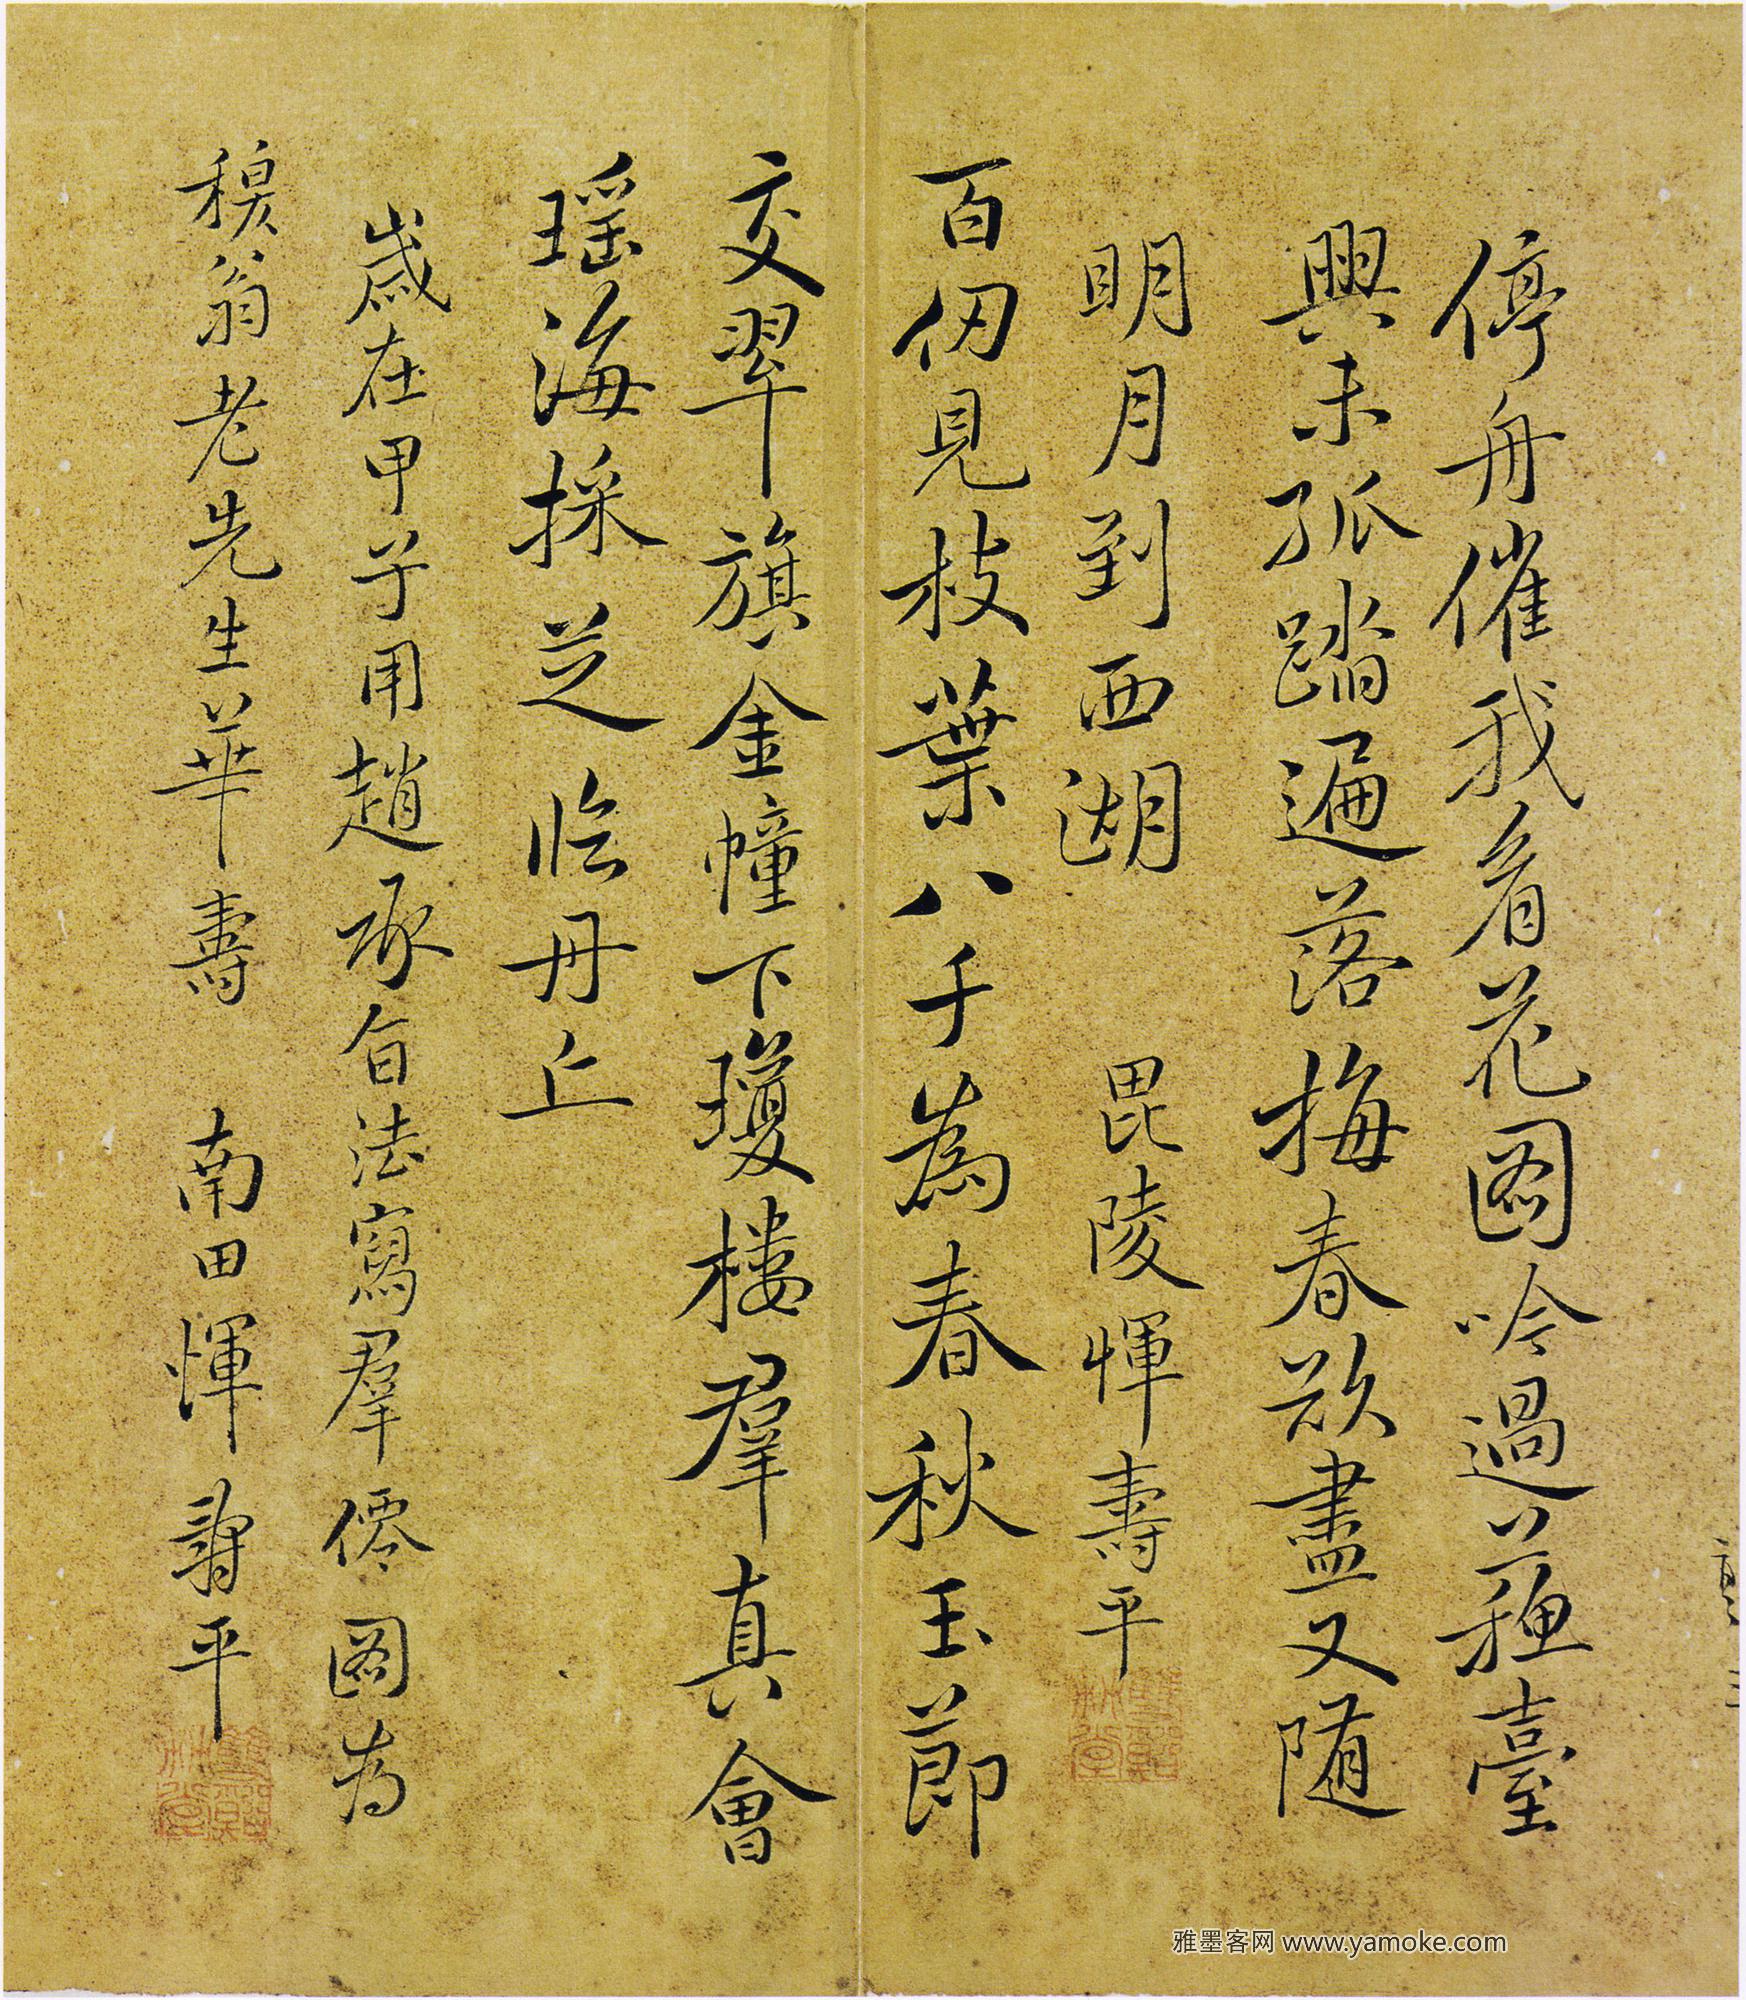 停舟催我看花圖吟過蘇臺
興未孤踏遍落梅春欲盡又隨
明月到西湖 毘陵惲壽平
百仞見枝葉八千為春秋玉節
交翠旗金幢下瓊樓羣真會
瑶海採芝臨丹丘
歲在甲子用趙承旨法寫羣僊圖為
穆翁老先生華壽 南田惲壽平
雅墨客网 www.yamoke.com